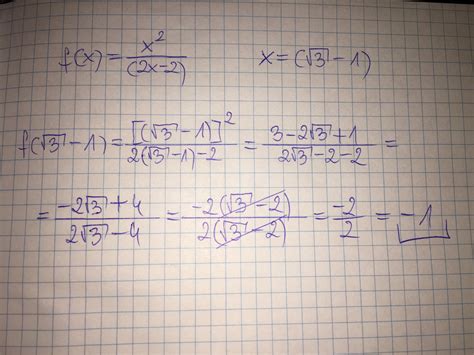 f(x) = x²/(2x-2) x = (√3 - 1)
f(√3 - 1) = [(√3 - 1)]²/2(√3 - 1) - 2 = 3 - 2√3 + 1/2√3 - 2 - 2 =
= -2√3 + 4/2√3 - 4 = -2(√3 - 2)/2(√3 - 2) = -2/2 = -1